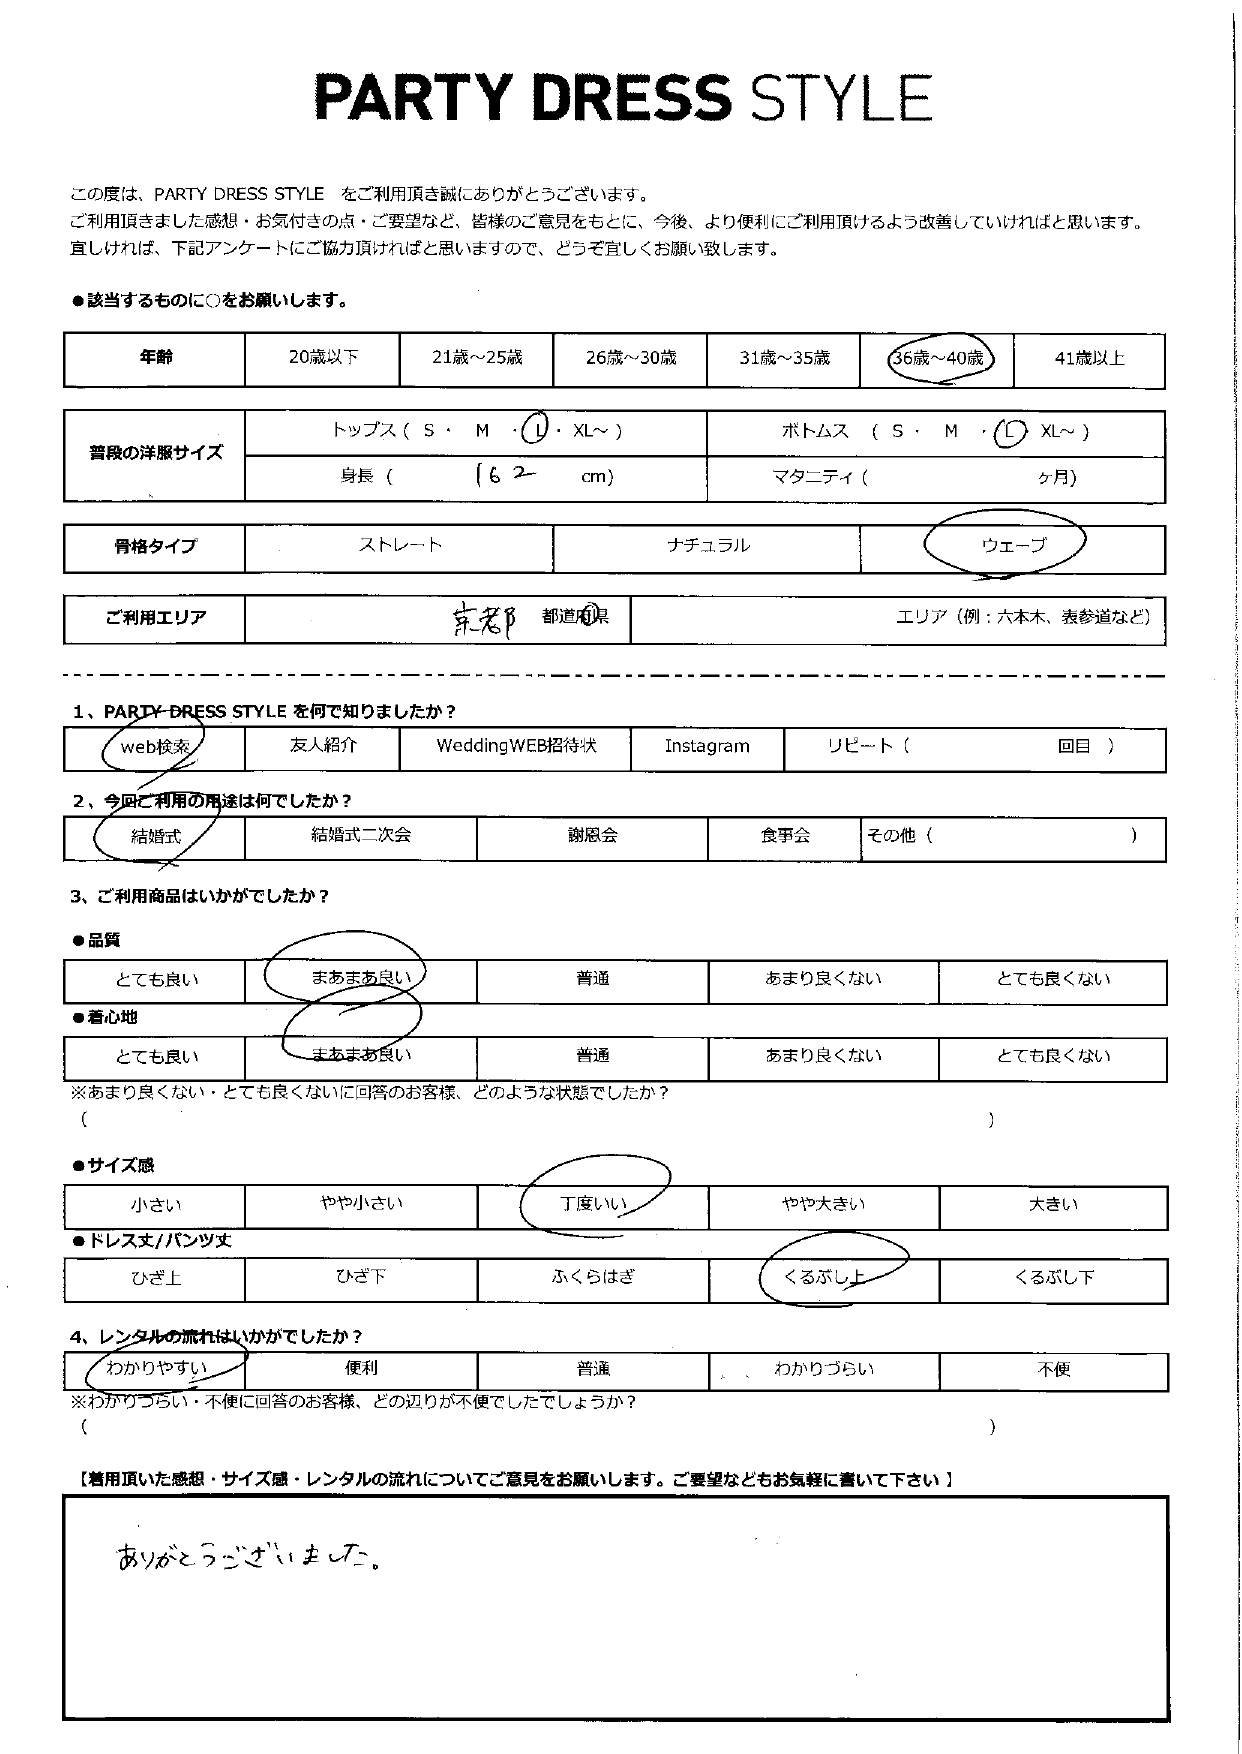 PARTY DRESS STYLE
この度は、PARTY DRESS STYLE をご利用頂き誠にありがとうございます。
ご利用頂きました感想・お気付きの点・ご要望など、皆様のご意見をもとに、今後、より便利にご利用頂けるよう改善していければと思います。
宜しければ、下記アンケートにご協力頂ければと思いますので、どうぞ宜しくお願い致します。
●該当するものに○をお願いします。
年齢 20歳以下 21歳～25歳 26歳～30歳 31歳～35歳 36歳～40歳 41歳以上
普段の洋服サイズ
トップス ( S ・ M ・ L ・ XL～ ) ボトムス ( S ・ M ・ L XL～ )
身長 ( 162 cm) マタニティ ( ヶ月)
骨格タイプ ストレート ナチュラル ウェーブ
ご利用エリア 京都 都道府県 エリア（例：六本木、表参道など）
1、PARTY DRESS STYLE を何で知りましたか？
web検索 友人紹介 WeddingWEB招待状 Instagram リピート ( 回目 )
2、今回ご利用の用途は何でしたか？
結婚式 結婚式二次会 謝恩会 食事会 その他 ( )
3、ご利用商品はいかがでしたか？
●品質
とても良い まあまあ良い 普通 あまり良くない とても良くない
●着心地
とても良い まあまあ良い 普通 あまり良くない とても良くない
※あまり良くない・とても良くないに回答のお客様、どのような状態でしたか？
( )
●サイズ感
小さい やや小さい 丁度いい やや大きい 大きい
●ドレス丈/パンツ丈
ひざ上 ひざ下 ふくらはぎ くるぶし上 くるぶし下
4、レンタルの流れはいかがでしたか？
わかりやすい 便利 普通 わかりづらい 不便
※わかりづらい・不便に回答のお客様、どの辺りが不便でしたでしょうか？
( )
【着用頂いた感想・サイズ感・レンタルの流れについてご意見をお願いします。ご要望などもお気軽に書いて下さい】
ありがとうございました。